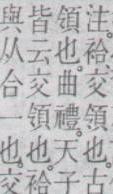 注。袷交領也。古
領也。曲禮。天子
皆云交領也。袷
與从合一也。交